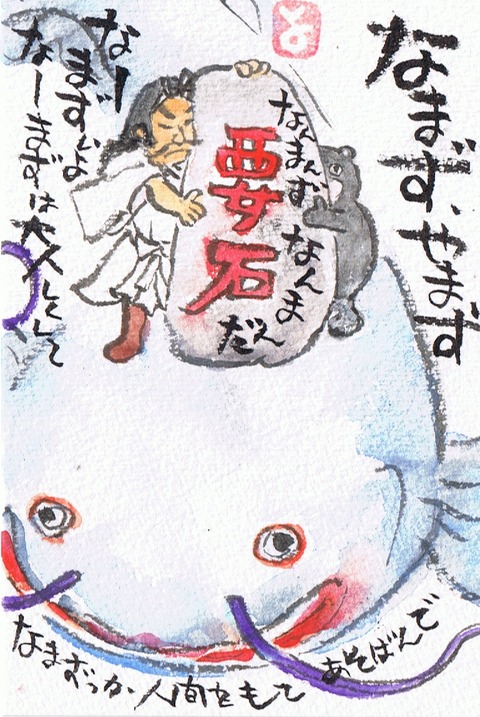 なまず、やまず
なんまんず
なんま
だん
要石
なーまずぃよ
なーまずは大人しくして
なまずっか人間をもて
あそばんで
と